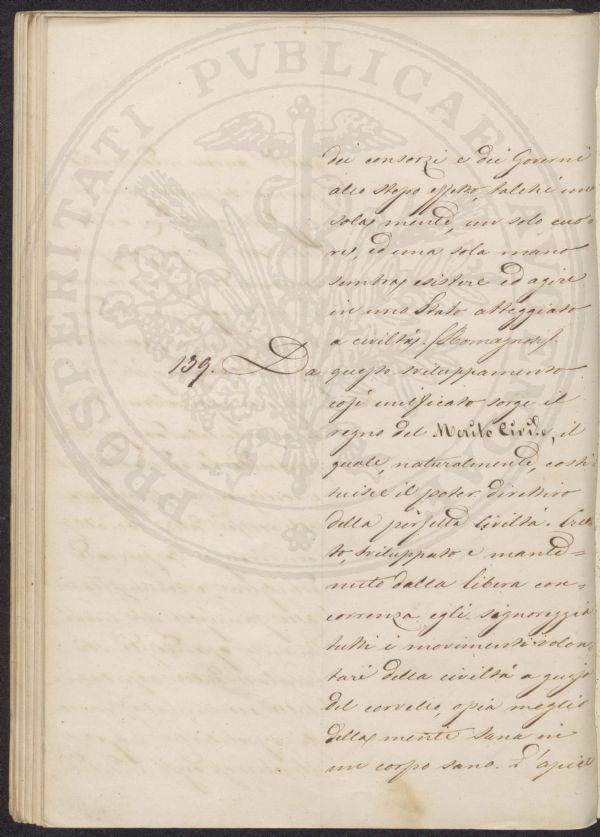 PROSPERITATI PVBLICAE AVGENDAE
dei consorzi e dei Governi
allo stesso effetto, talchè una
sola mente, un solo cuo=
re, ed una sola mano
sembra esistere ed agire
in uno Stato atteggiato
a civiltà. (Romagnosi).
139. Da questo sviluppamento
così unificato sorge il
regno del Merito Civile, il
quale, naturalmente, costi
tuisce il poter direttivo
della perfetta Civiltà. Crea
to, sviluppato e mante=
nuto dalla libera con=
correnza egli signoreggia
tutti i movimenti volon
tari della civiltà a guisa
del cervello, o sia meglio
della mente sana in
un corpo sano. L'apice